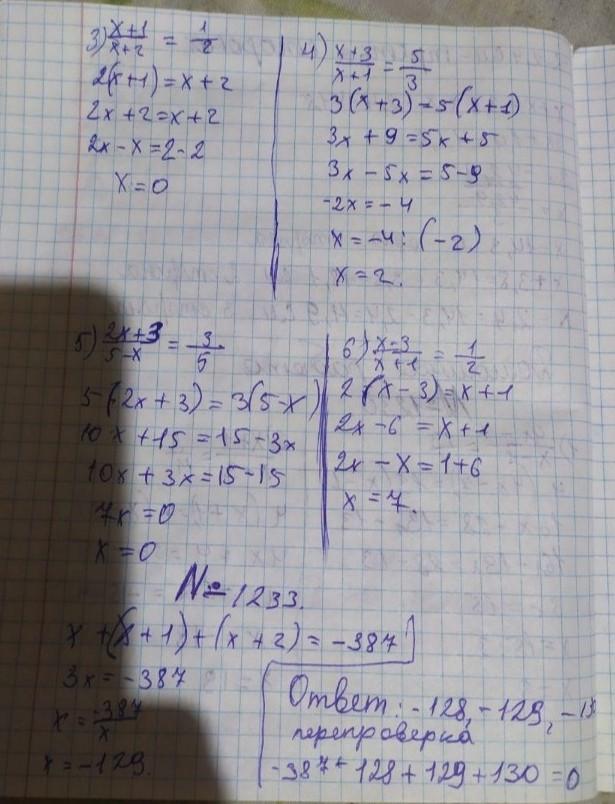 3) x+1/x+2 = 1/2
2(x+1)=x+2
2x+2=x+2
2x-x=2-2
x=0
4) x+3/x+1 = 5/3
3(x+3)=5(x+1)
3x+9=5x+5
3x-5x=5-9
-2x=-4
x=-4:(-2)
x=2.
5) 2x+3/5-x = 3/5
5(2x+3)=3(5-x)
10x+15=15-3x
10x+3x=15-15
7x=0
x=0
6) x-3/x+1 = 1/2
2(x-3)=x+1
2x-6=x+1
2x-x=1+6
x=7.
№1233.
x+(x+1)+(x+2)=-387
3x=-387
x=-387/x
x=-129.
Ответ: -128, -129,
перепроверка
-387+128+129+130=0